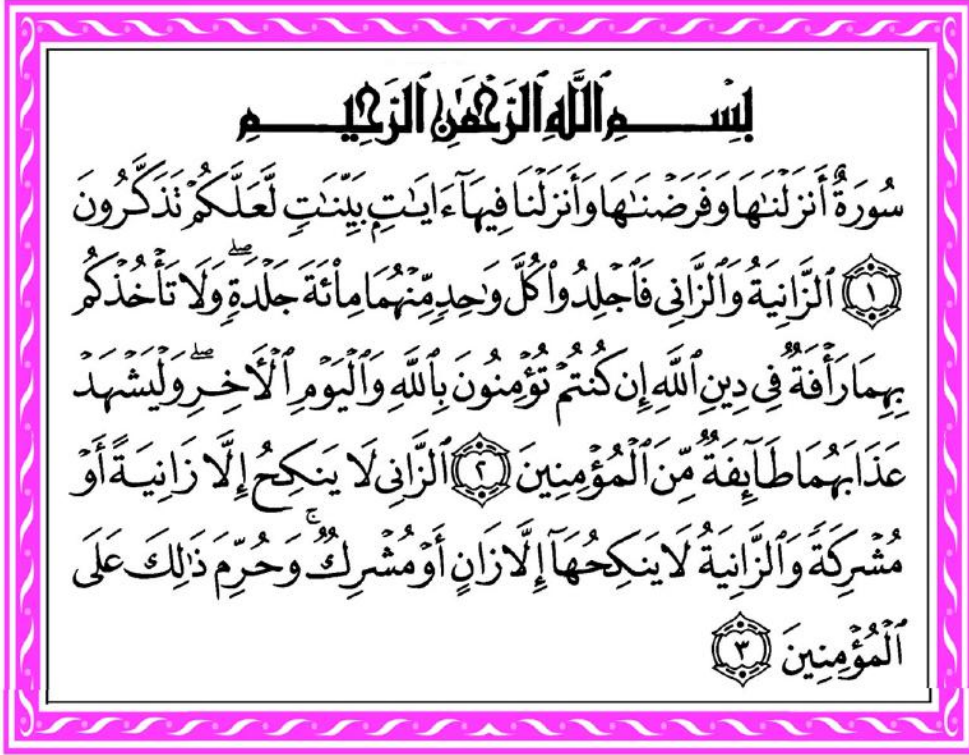 بِسْمِ ٱللَّهِ ٱلرَّحْمَٰنِ ٱلرَّحِيمِ
سُورَةٌ أَنزَلْنَٰهَا وَفَرَضْنَٰهَا وَأَنزَلْنَا فِيهَآ ءَايَٰتٍۭ بَيِّنَٰتٍ لَّعَلَّكُمْ تَذَكَّرُونَ
١ ٱلزَّانِيَةُ وَٱلزَّانِى فَٱجْلِدُوا۟ كُلَّ وَٰحِدٍ مِّنْهُمَا مِا۟ئَةَ جَلْدَةٍ ۖ وَلَا تَأْخُذْكُم
بِهِمَا رَأْفَةٌ فِى دِينِ ٱللَّهِ إِن كُنتُمْ تُؤْمِنُونَ بِٱللَّهِ وَٱلْيَوْمِ ٱلْأَخِرِ ۖ وَلْيَشْهَدْ
عَذَابَهُمَا طَآئِفَةٌ مِّنَ ٱلْمُؤْمِنِينَ ٢ ٱلزَّانِى لَا يَنكِحُ إِلَّا زَانِيَةً أَوْ
مُشْرِكَةً وَٱلزَّانِيَةُ لَا يَنكِحُهَآ إِلَّا زَانٍ أَوْ مُشْرِكٌ ۚ وَحُرِّمَ ذَٰلِكَ عَلَى
ٱلْمُؤْمِنِينَ ٣